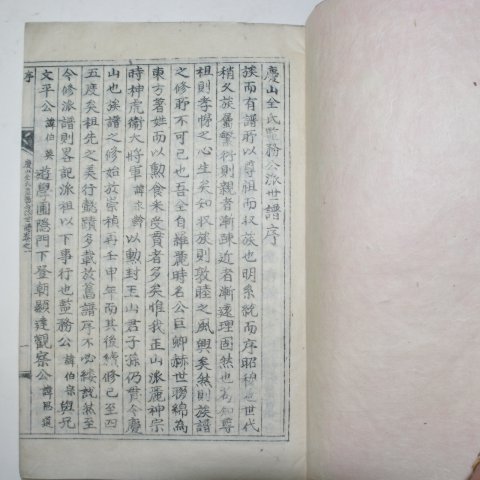 慶山全氏監務公派世譜序
族而有譜所以尊祖而收族也明系統而序昭穆也世代
稍久族屬繁衍則親者漸疎近者漸遠理固然也苟知尊
祖則孝悌之心生矣知收族則敦睦之風興矣然則族譜
之修所不可已也吾全自羅麗時名公巨卿赫世弈綿為
東方著姓而以勳食采受貫者多矣惟我玉山派麗神宗
時神虎衛大將軍諱永齡以勳封玉山君子孫仍貫今慶
山也族譜之修始於崇禎再壬申年而其後續修已至四
五度矣祖先之美行懿蹟多載於舊譜序不必縷說然至
今修派譜則畧記派祖以下事行也監務公諱伯宗與兄
文平公諱伯英遊學圃隱門下登朝顯達觀察公諱熙選
序